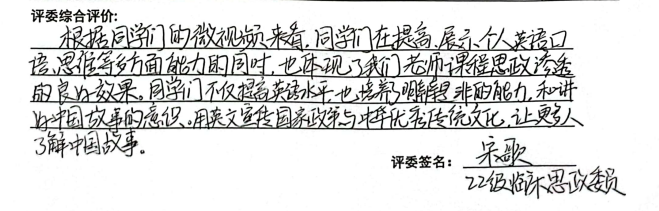 评委综合评价:
根据同学们的微视频来看，同学们在提高、展示个人英语口
语、思维等多方面能力的同时，也体现了我们老师课程思政渗透
的良好效果。同学们不仅提高英语水平，也培养了明辨是非的能力，和讲
好中国故事的意识。用英文宣传国家政策与中华优秀传统文化，让更多人
了解中国故事。
评委签名：宋歌
22级临床思政委员